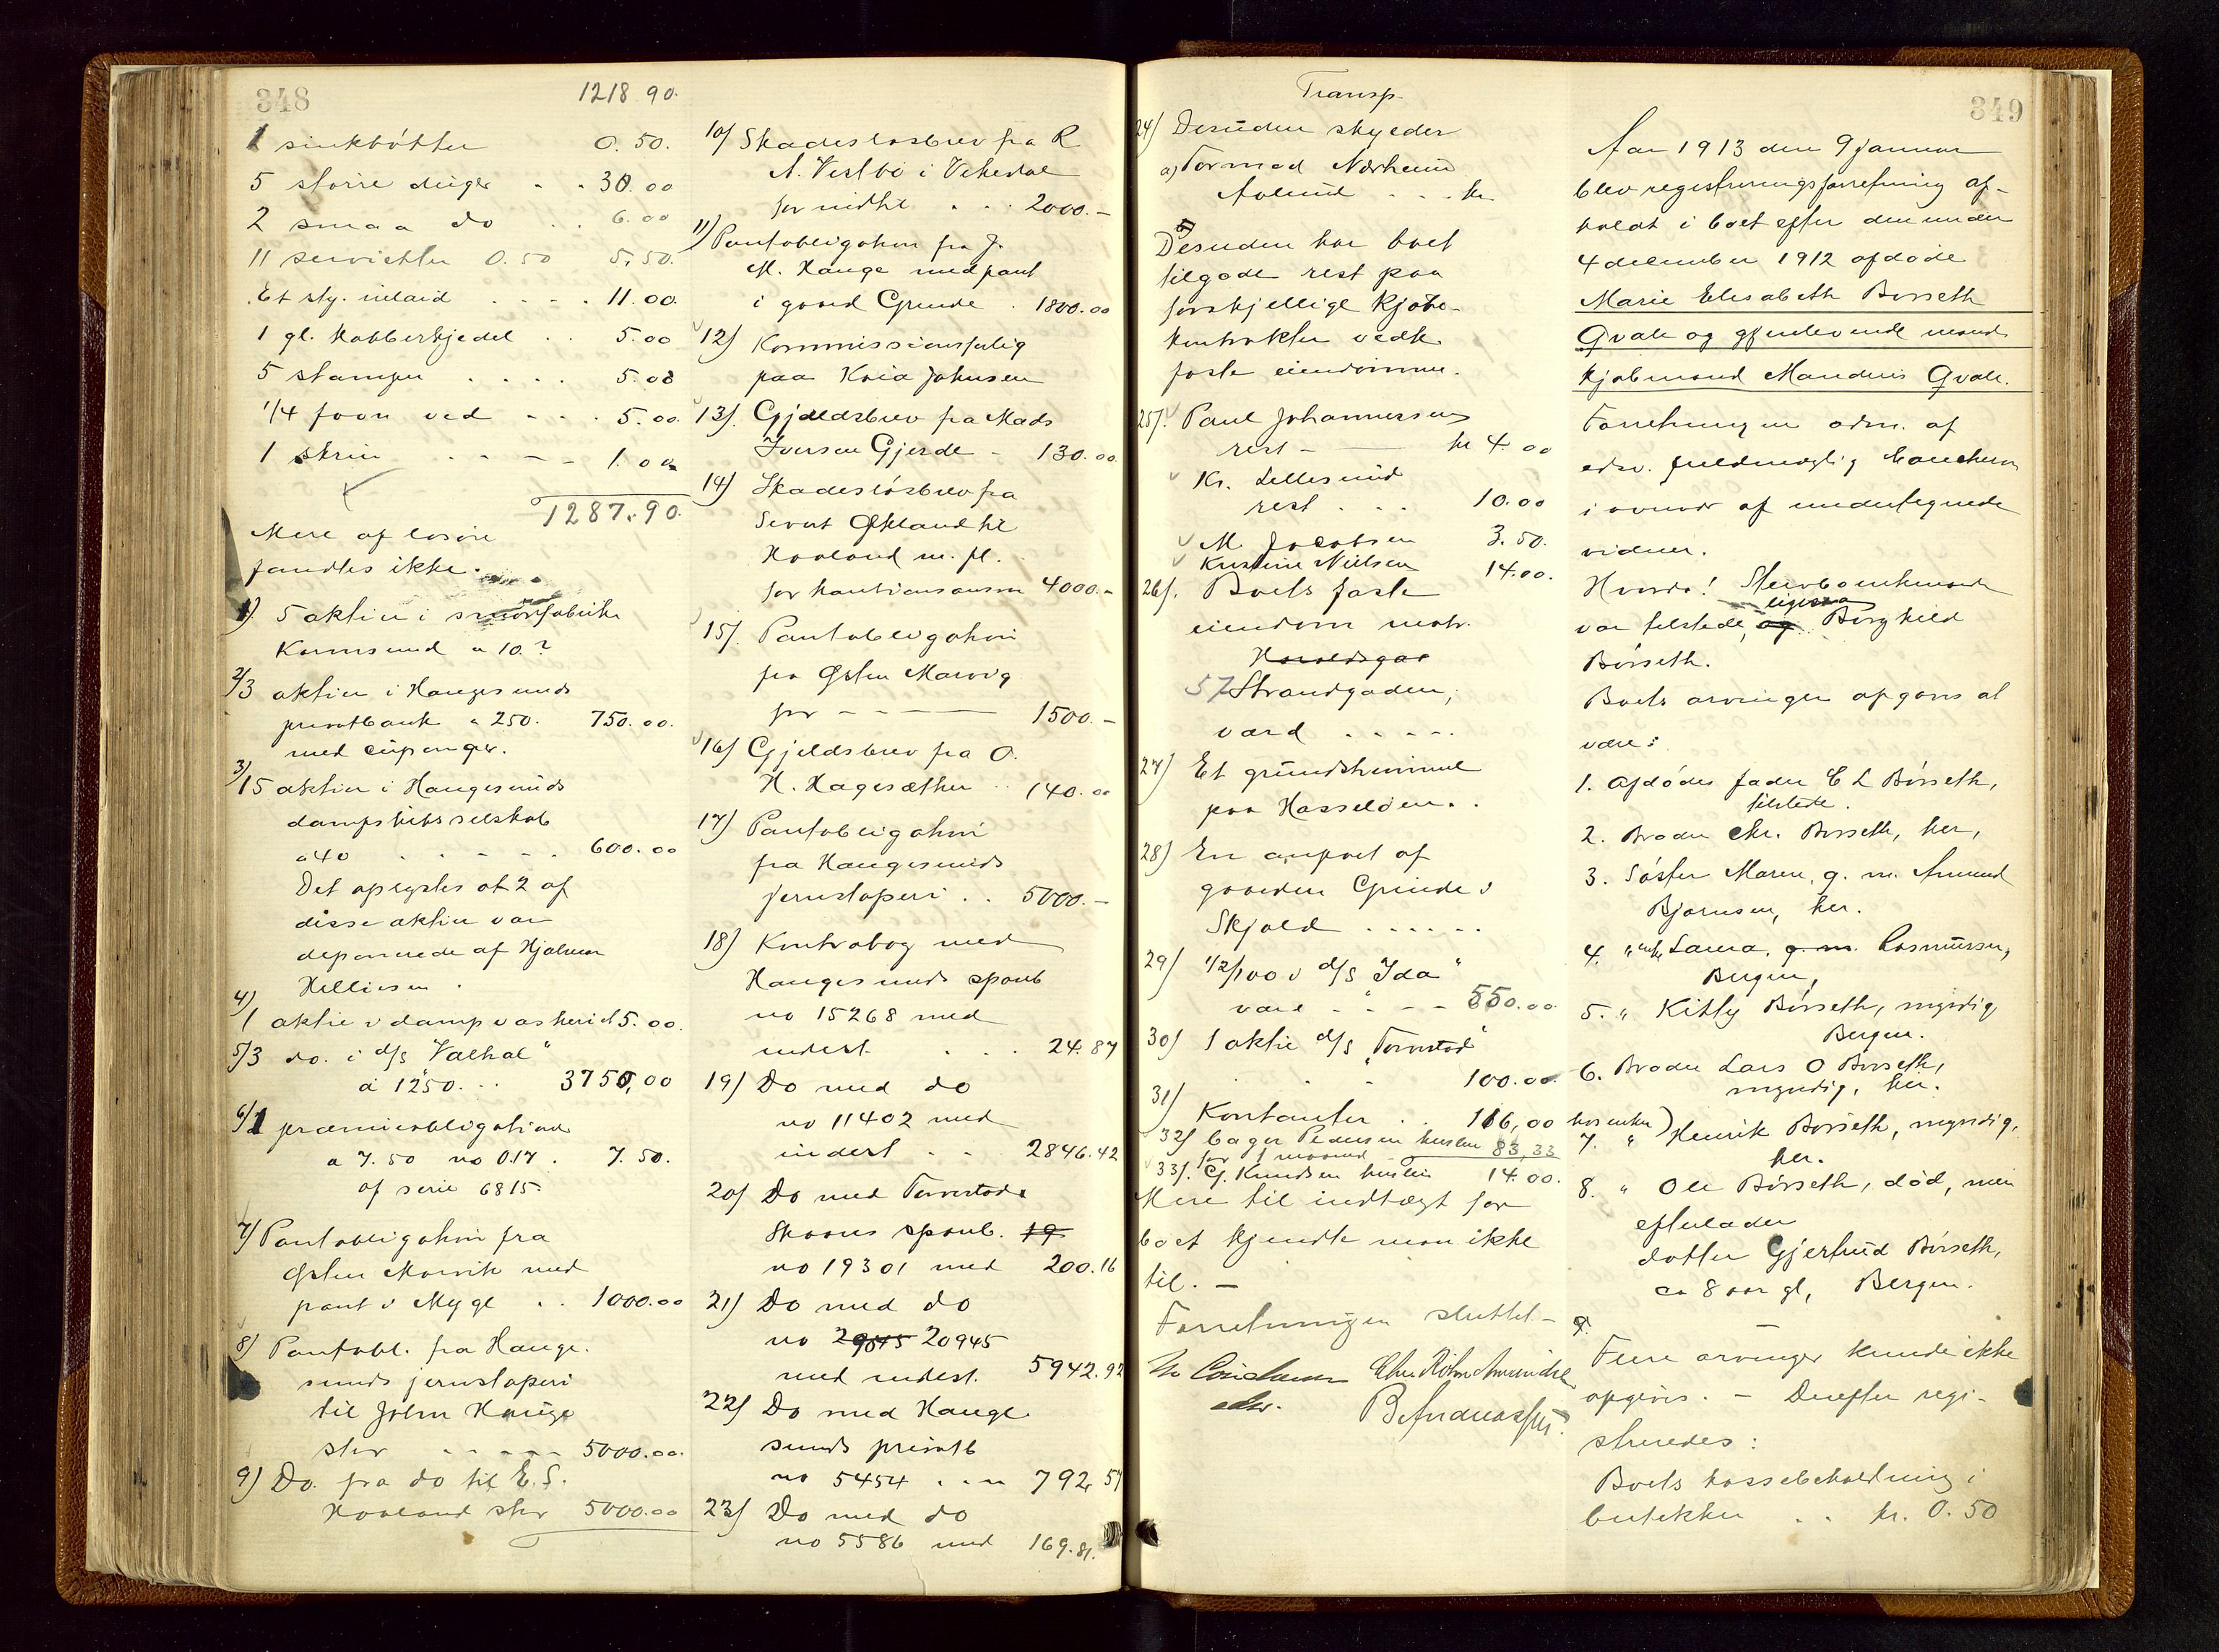 348
1218 90.
1 sinkbøtter 0.50.
5 større duger - - 30.00
2 smaa do . . 6.00
11 servietter 0.50 5.50.
Et sty. inlaid . - - . 11.00.
1 gl. kobberkjedel . . 5.00
5 stamper . . . . 5.00
1/4 favn ved - - . 5.00.
1 skrin . - - - 1.00
1287.90.
Mere af løsøre
fandtes ikke.
1) 5 aktier i smørfabrik
Karmsund a 10.?
2) 3 aktier i Haugesunds
privatbank a 250. 750.00.
med cuponger.
3) 15 aktier i Haugesunds
dampskibsselskab
a 40 . - - - . 600.00
Det oplystes at 2 af
disse aktier var
deponerede af Hjalmar
Helliesen.
4) 1 aktie i dampvaskeri 15.00.
5) 3 do. i d/s "Valhal"
a 1250. . . 3750,00
6) 1 præmieobligation
a 7.50 no 017. 7.50.
af serie 6815.
7) Pantobligation fra
Østen Marvik med
pant i Myge . . 1000.00
8) Pantobl. fra Hauge-
sunds jernstøperi
til John Hauge
stor - - - - - 5000.00.
9) Do. fra do til E. S.
Haaland stor 5000.00
10) Skadesløsbrev fra R
A. Vestbø i Vikedal
for indtil . . . 2000.-
11) Pantobligation fra J.
M. Hauge med pant
i gaard Grinde . 1800.00
12) Kommissionsforlig
paa Kaia Johnsen
13) Gjældsbrev fra Mads
Iversen Gjerde - 130.00
14) Skadesløsbrev fra
Sevat Økland til
Haaland m. fl.
for kautionsansvar 4000.-
15) Pantobligation
fra Østen Marvig
for - - - 1500.-
16) Gjeldsbrev fra O.
H. Hagesæther . . 140.00
17) Pantobligation
fra Haugesunds
jernstøperi . . 5000.-
18) Kontrabog med
Haugesunds sparb
no 15268 med
indest. . . . 24.87
19) Do med do
no 11402 med
indest - - 2846.42
20) Do med Torvestad &
Skaares sparb. 19
no 19301 med 200.16
21) Do med do
no 29845 20945
med indest. 5942.92
22) Do med Hauge
sunds privatb
no 5454 . . . 792,57
23) Do med do
no 5586 med 169.81.
Transp.
24) Desuden skylder
a) Tormod Nærheim
Aolund . . . kr
b) Desuden har boet
tilgode rest paa
forskjellige kjøbe-
kontrakter vedk.
faste eiendomme.
25) Paul Johannessen
rest - kr 4.00
Kr. Lillesund
rest . . . 10.00
M Jacobsen 3.50.
Kristine Nielsen 14.00.
26) Boets faste
eiendom matr.
Haraldsgad
57 Strandgaden,
værd . . . . .
27) Et grundstrimmel
paa Hasseløen. .
28) En anpart af
gaarden Grinde i
Skjold . . . . . .
29) 1/2/100 i d/s "Ida"
værd - - - - 550.00
30) 1 aktie d/s "Torvestad"
. - - 100.00.
31) Kontanter . . 116,00 hos enkem)
32) Cager Pedersen husleie 83,33
for 1 maaned
33) G. Knudsen husleie 14.00.
Mere til indtægt for
boet kjendte man ikke
til. -
Forretningen sluttet -
B Andreassen.
349
Aar 1913 den 9 januar
blev registreringsforretning af-
holdt i boet efter den under
4 december 1912 afdøde
Marie Elisabeth Børseth
Qvale og gjenlevende mand
kjøbmand Mandius Qvale.
Forretningen adm. af
edsv. fuldmægtig Conchum
i overvær af undertegnede
vidner.
Hvorda! Stervboenkemand
var tilstede, og ligesaa Borghild
Børseth.
Boets arvinger opgaves at
være:
1. Afdødes fader E L Børseth,
tilstede.
2. Broder Chr. Børseth, her,
3. Søster Maren, g. m. Amund
Bjørnsen, her.
4. " enke Laura, g. m. Rasmussen,
Bergen,
5. " Kitty Børseth, myndig,
Bergen.
6. Broder Lars O Børseth,
myndig, her.
7. " Henrik Børseth, myndig,
her.
8. " Ole Børseth, død, men
efterlader
datter Gjertrud Børseth,
ca 8 aar gl, Bergen.
9. -
Flere arvinger kunde ikke
opgives. - Derefter regi-
streredes:
Boets kassebeholdning i
butikken . . kr. 0.50